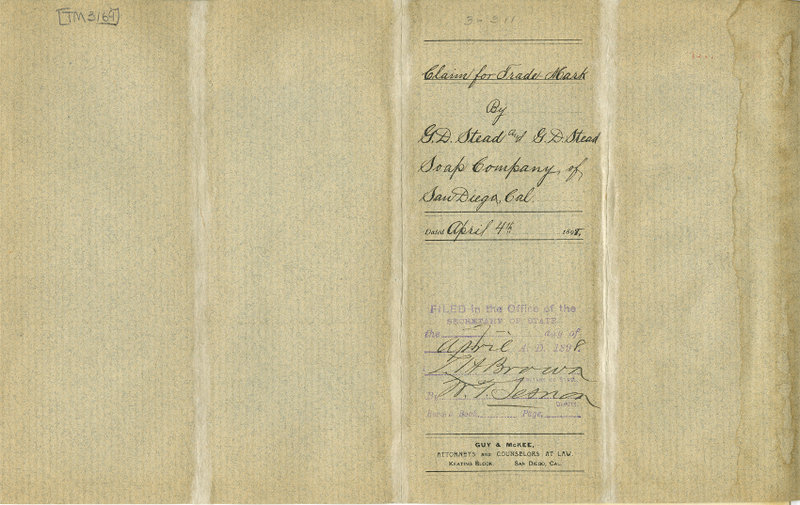 TM3164
3-311
Claim for Trade Mark
By
G.D. Stead and G.D. Stead
Soap Company, of
San Diego, Cal.
Dated April 4th 1898.
FILED in the Office of the
SECRETARY OF STATE
the day of
April A.D. 1898.
Brown
By W. T. Sesnon
Record Book Page
GUY & McKEE,
ATTORNEYS AND COUNSELORS AT LAW.
KEATING BLOCK. SAN DIEGO, CAL.